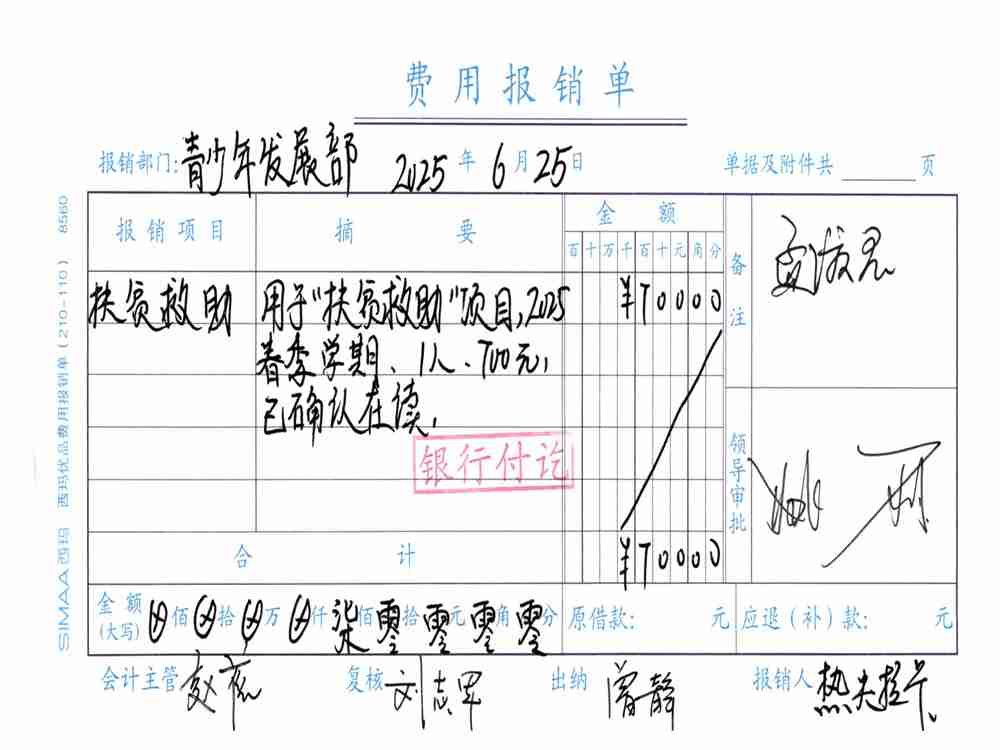 费用报销单
报销部门:青少年发展部 2025年6月25日 单据及附件共 页
报销项目 摘要 金额 备注
百十万千百十元角分
扶贫救助 用于“扶贫救助”项目,2025 ¥70000
春季学期、1人、700元,
已确认在读,
银行付讫
领导审批
合计 ¥70000
金额(大写) ⊗佰⊗拾⊗万⊗仟柒佰零拾零元零角零分 原借款: 元 应退(补)款: 元
会计主管 复核 刘志军 出纳 曾静 报销人
SIMAA西玛 西玛优品费用报销单(210-110) 8560